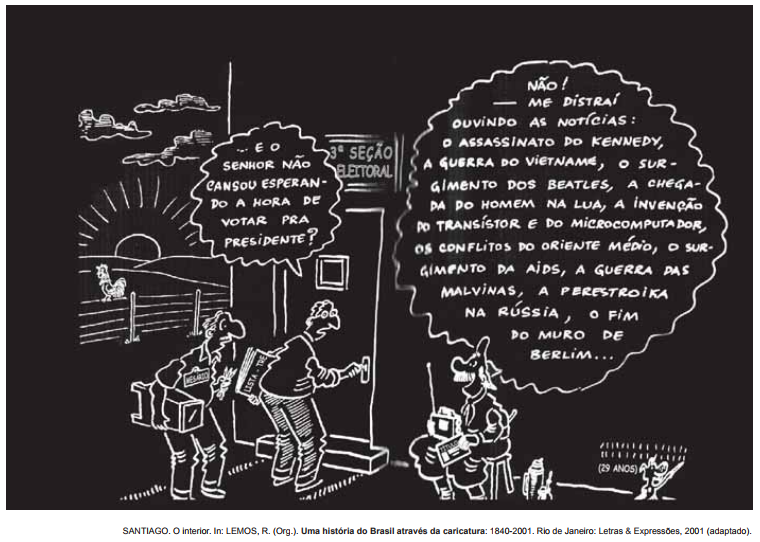 ... E O
SENHOR NÃO
CANSOU ESPERAN-
DO A HORA DE
VOTAR PRA
PRESIDENTE?
3ª SEÇÃO
ELEITORAL
NÃO!
— ME DISTRAÍ
OUVINDO AS NOTÍCIAS:
O ASSASSINATO DO KENNEDY,
A GUERRA DO VIETNAME, O SUR-
GIMENTO DOS BEATLES, A CHEGA-
DA DO HOMEM NA LUA, A INVENÇÃO
DO TRANSÍSTOR E DO MICROCOMPUTADOR,
OS CONFLITOS DO ORIENTE MÉDIO, O SUR-
GIMENTO DA AIDS, A GUERRA DAS
MALVINAS, A PERESTROIKA
NA RÚSSIA, O FIM
DO MURO DE
BERLIM...
MESÁRIO
LISTA-TRE
(29 ANOS)
SANTIAGO. O interior. In: LEMOS, R. (Org.). Uma história do Brasil através da caricatura: 1840-2001. Rio de Janeiro: Letras & Expressões, 2001 (adaptado).